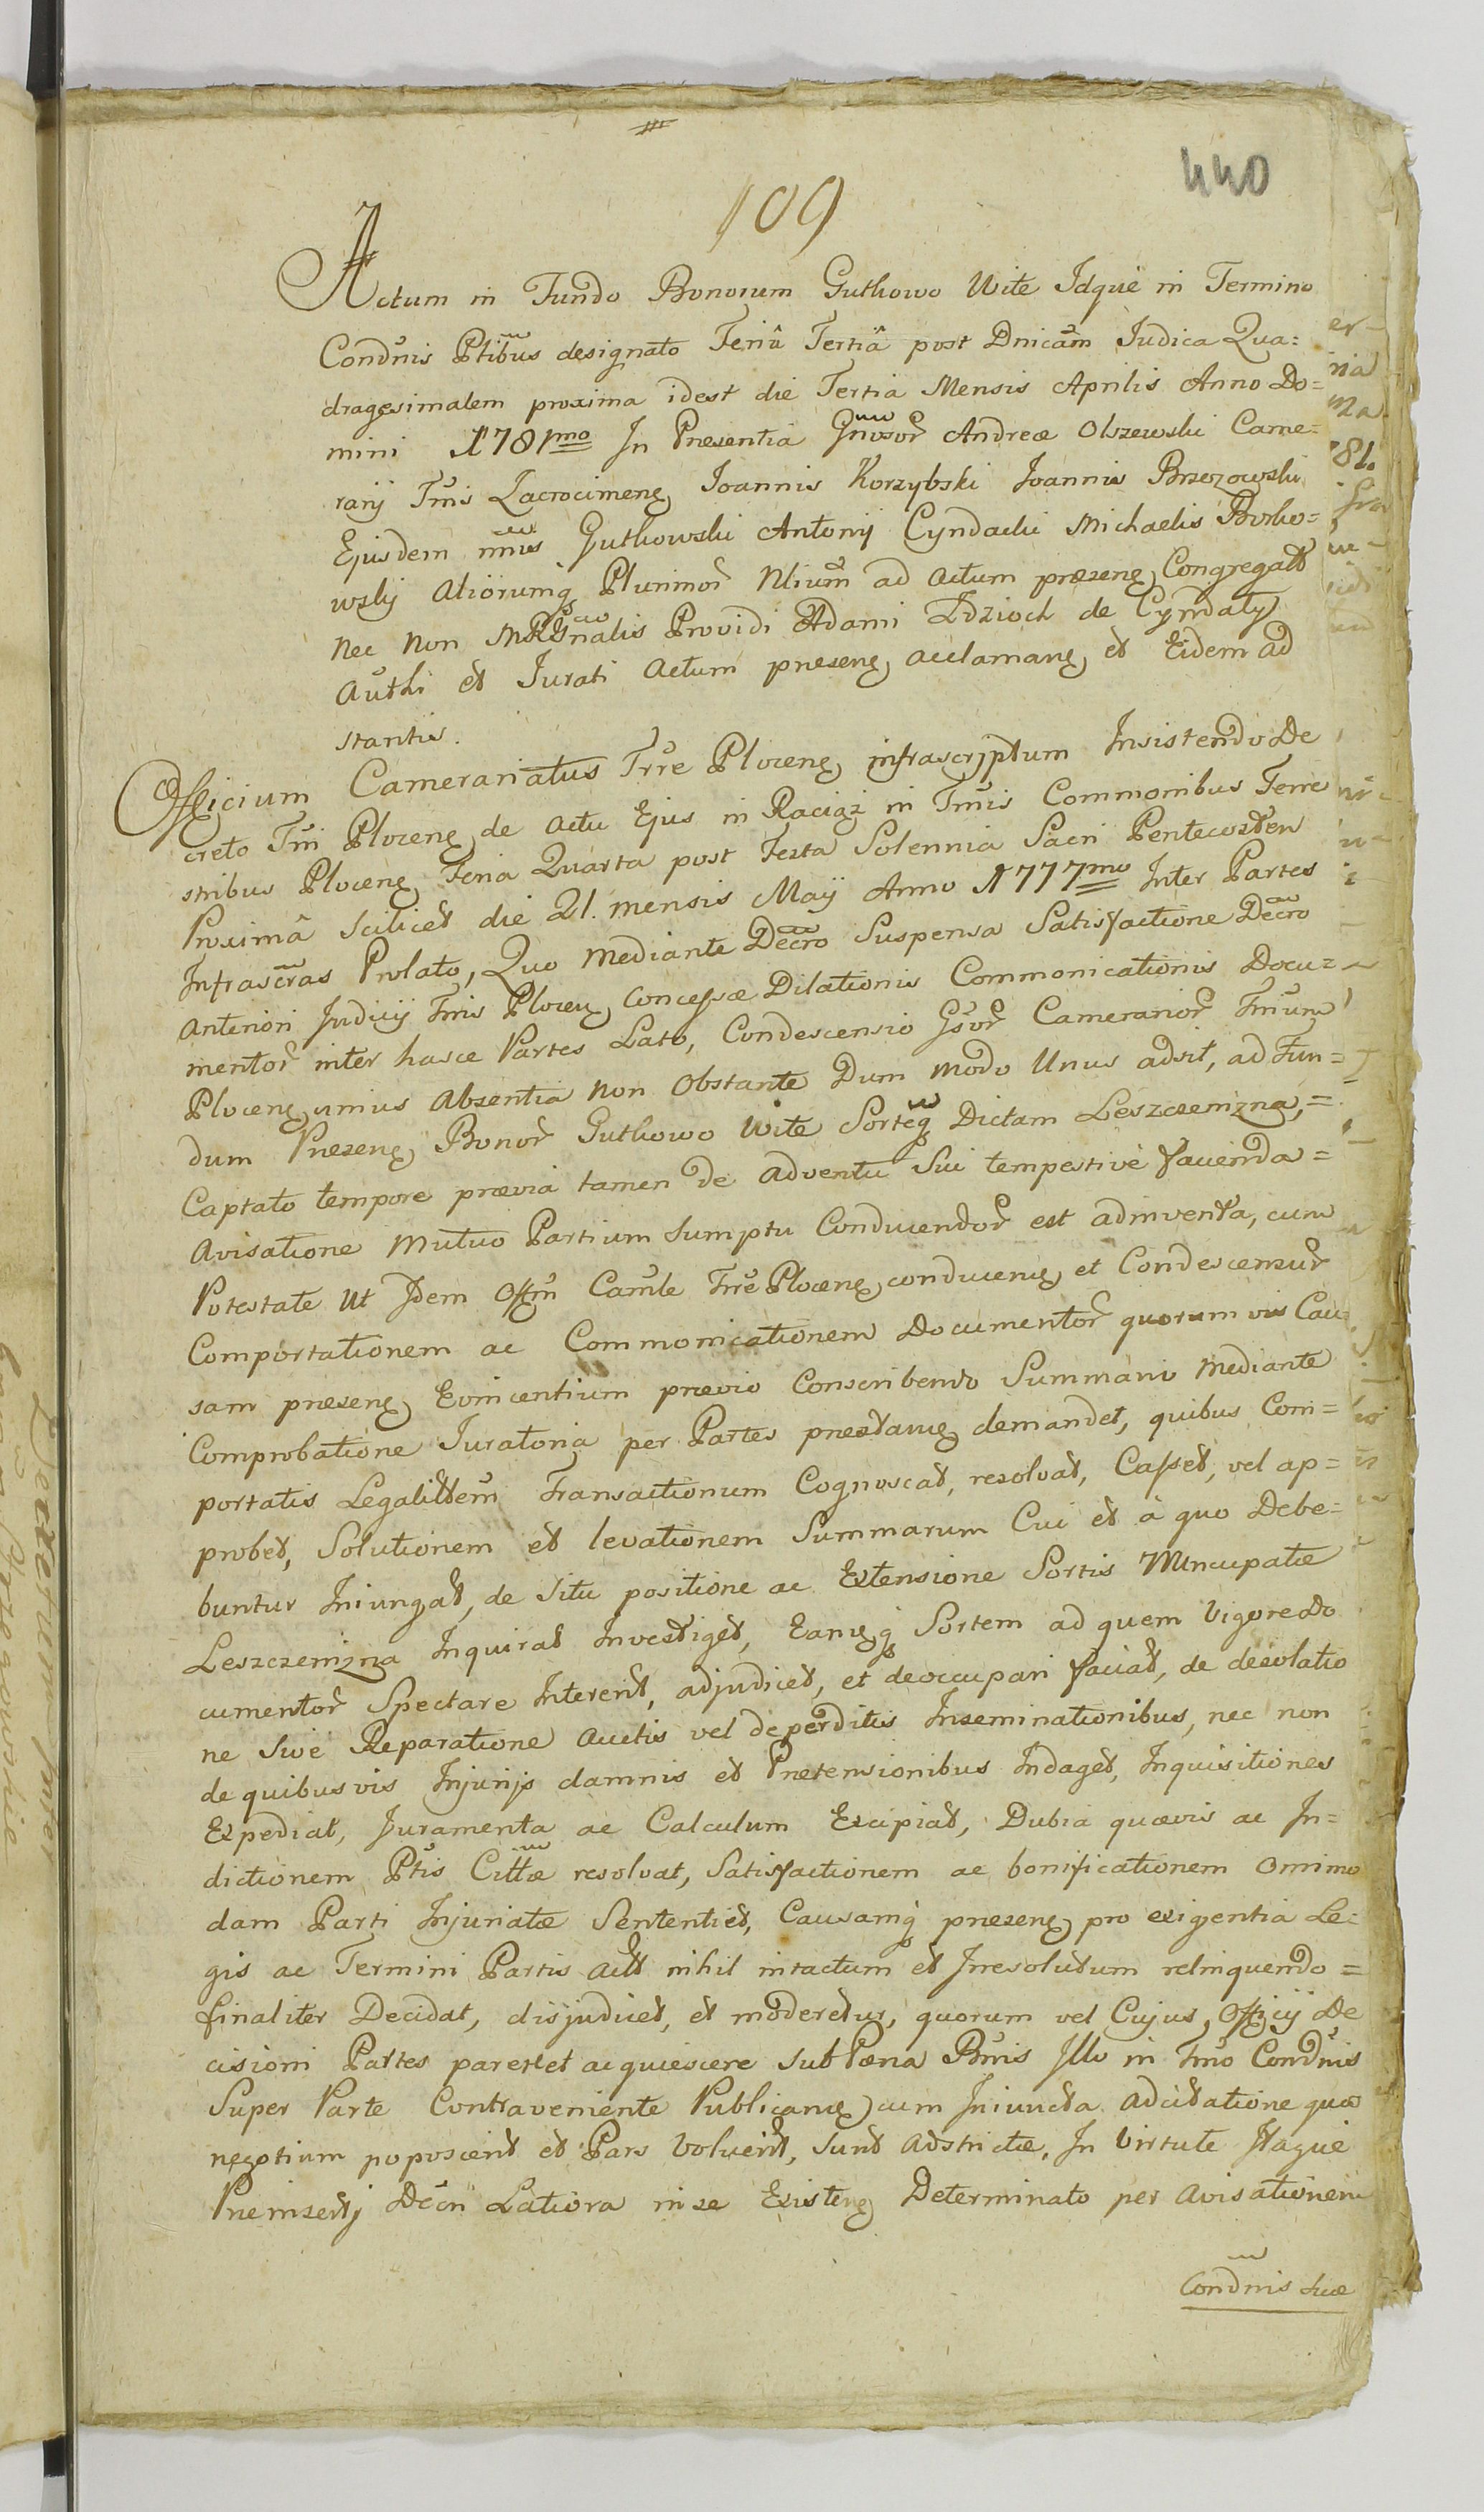 440
109
Actum in Fundo Bonorum Gutkowo Wite Idque in Termino
Condnis Ptibus designato Feria Tertiâ post Dnicam Judica Qua=
dragesimalem proxima idest die Tertia Mensis Aprilis Anno Do=
mini 1781mo In Presentia Gnosor Andreæ Olszewski Came=
rarij Tris Zacrocimens, Joannis Korzybski Joannis Brzozowski
Ejusdem nnis Gutkowski Antonij Cyndacki Michaelis Borko=
wskij Aliorumq Plurimor Nlium ad Actum præsens Congregatt
nec non MRGnalis Providi Adami Zdzioch de Cyndaty
Authi et Jurati Actum presens acclamans et Eidem ad
stantis.
Officium Camerariatus Trre Plocens, infrascriptum Insistendo De
creto Tri Plocens, de actu Ejus in Raciąż in Tmis Commonibus Terre
stribus Plocens, Feria Quarta post Festa Solennia Sacri Pentecosten
Proximâ scilicet die 21. mensis Maij Anno 1777mo Inter Partes
Infrascras Prolato, Quo Mediante Decro Suspensa Satisfactione Decro
Anteriori Judicij Tris Plocen, concessæ Dilationis Commonicationis Docu=
mentor inter hasce Partes Lato, Condescensio Gsor Camerarior Trium
Plocens, unius Absentia non Obstante Dum modo Unus adsit, ad Fun=
dum Presens, Bonor Gutkowo Wite Sorteq Dictam Leszczenizna,=
Captato tempore prævia tamen de adventu Sui tempestive facienda=
Avisatione Mutuo Partium sumptu Conducendor est adinventa, cum
Potestate Ut Idem Offm Camle Trre Plocens, conducens, et Condescensur
Comportationem ac Commonicationem Documentor quorum vis Cau
sam presens, Evincentium prævio Conscribendo Summario mediante
Comprobatione Juratoria per Partes prestans, demandet, quibus Com=
portatis Legalittem Transactionum Cognoscat, resolvat, Casset, vel ap=
probet, Solutionem et levationem Summarum Cui et à quo Debe=
buntur Iniungat, de Situ positione ac Extensione Sortis Nuncupatæ
Leszczenizna Inquirat Investiget, Eamq Sortem ad quem Vigore Do
cumentor Spectare Interent, adjudicet, et deoccupari faciat, de desolatio
ne sive Reparatione Auctis vel deperditis Inseminationibus, nec non
de quibusvis Injurijs damnis et Pretensionibus Indaget, Inquisitiones
Expediat, Juramenta ac Calculum Excipiat, Dubia quævis ac In=
dictionem Ptis Cittæ resolvat, Satisfactionem ac bonificationem omimo
dam Parti Injuriatæ Sententiet, Causamq presens, pro exigentia Le=
gis ac Termini Partis actt nihil intactum et Inresolutum relinquendo=
finaliter Decidat, disjudicet, et moderetur, quorum vel Cujus Officij De
cisioni Partes parere et acquiescere sub Pæna Bnis Illo in Tmo Condnis
Super Parte Contraveniente Publicans, cum Iniuncta Adcitatione quæ
negotium poposcerit et Pars voluerit, sunt adstrictæ. In Virtute Itaque
Premisertj Decri Latiora in se Existens Determinato per Avisationem
Condnis suæ